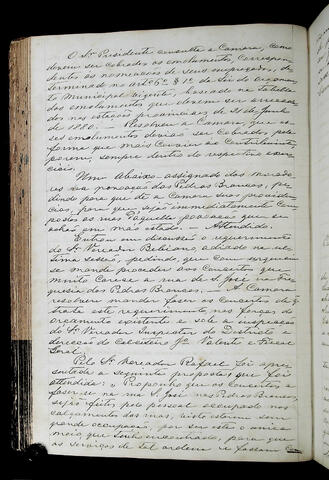 O Sr. Presidente consulta a Camara, como
devem ser cobrados os emolumentos, correspon-
dentes as nomeações de seus empregados, de-
terminado no artº 6º § 12 da Lei do orçamen-
to Municipal vigente, baseado na tabella
dos emolumentos que devem ser arrecada-
dos nas estações provinciaes de
de 1880. — Resolveu a Camara que es-
ses emolumentos devião ser cobrados pela
forma que mais convier ao contribuinte,
porem, sempre dentro do respectivo exer-
cicio.
Um Abaixo assignado dos morado-
res da povoação das Pedras Brancas, pe-
dindo para que dê a Camara suas providen-
cias, para que sejão immediatamente com-
postas as ruas d'aquella povoação que se
achão em máo estado. — Attendido.
Entrou em discussão o requerimento
do Sr. Vereador Belisario, adiado na ul-
tima sessão, pedindo, que com urgencia
se mande proceder aos concertos que
muito carece a rua de S. José na Fre-
guesia das Pedras Brancas. — A Camara
resolveu mandar fazer os concertos de q
trata este requerimento nas forças do
orçamento existente e sob a inspecção
do Sr. Vereador Inspector do Districto e
direcção do Calceteiro Valente e Fiscal
Geral.
Pelo Sr. Vereador Rafael foi apre-
sentada a seguinte proposta que foi
attendida: « Proponho que os concertos a
fazer-se na rua S. José nas Pedras Brancas,
sejão feitos pelo pessoal occupado nos
calçamentos das ruas, visto estarem sem
grande occupação, por ser este o unico
meio que tenho encontrado, para que
os serviços de tal ordem se fassam